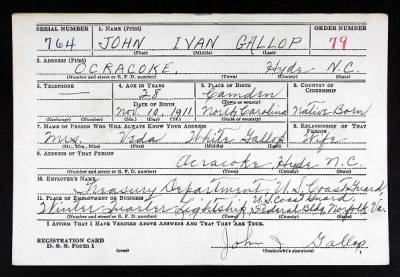 SERIAL NUMBER 1. NAME (Print) ORDER NUMBER
764 JOHN IVAN GALLOP 79
(First) (Middle) (Last)
2. ADDRESS (Print)
OCRACOKE. Hyde N.C.
(Number and street or R. F. D. number) (Town) (County) (State)
3. TELEPHONE 4. AGE IN YEARS 5. PLACE OF BIRTH 6. COUNTRY OF CITIZENSHIP
— 28 Camden
DATE OF BIRTH (Town or county)
Nov. 10. 1911. North Carolina Native Born
(Exchange) (Number) (Mo.) (Day) (Yr.) (State or country)
7. NAME OF PERSON WHO WILL ALWAYS KNOW YOUR ADDRESS 8. RELATIONSHIP OF THAT PERSON
Mrs. Vida White Gallop Wife
(Mr., Mrs., Miss) (First) (Middle) (Last)
9. ADDRESS OF THAT PERSON
Ocracoke Hyde N.C.
(Number and street or R. F. D. number) (Town) (County) (State)
10. EMPLOYER'S NAME
Treasury Department, U.S. Coast Guard,
11. PLACE OF EMPLOYMENT OR BUSINESS U.S. Coast Guard
Winter Quarter Lightship, Federal Bldg, Norfolk Va.
(Number and street or R. F. D. number) (Town) (County) (State)
I AFFIRM THAT I HAVE VERIFIED ABOVE ANSWERS AND THAT THEY ARE TRUE.
REGISTRATION CARD
D. S. S. Form 1
John I Gallop
(Registrant's signature)